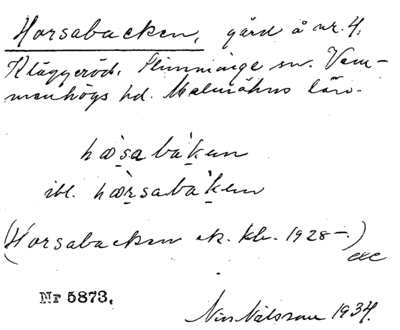 Horsabacken, gård å nr. 4,
Kläggeröd, Slimminge sn. Vem-
menhögs hd. Malmöhus län.
hòsabàken
ibl. hòrsabàken
(Horsabacken ek. kbl. 1928–)
exc
Nr 5873.
Nils Nilsson 1934.